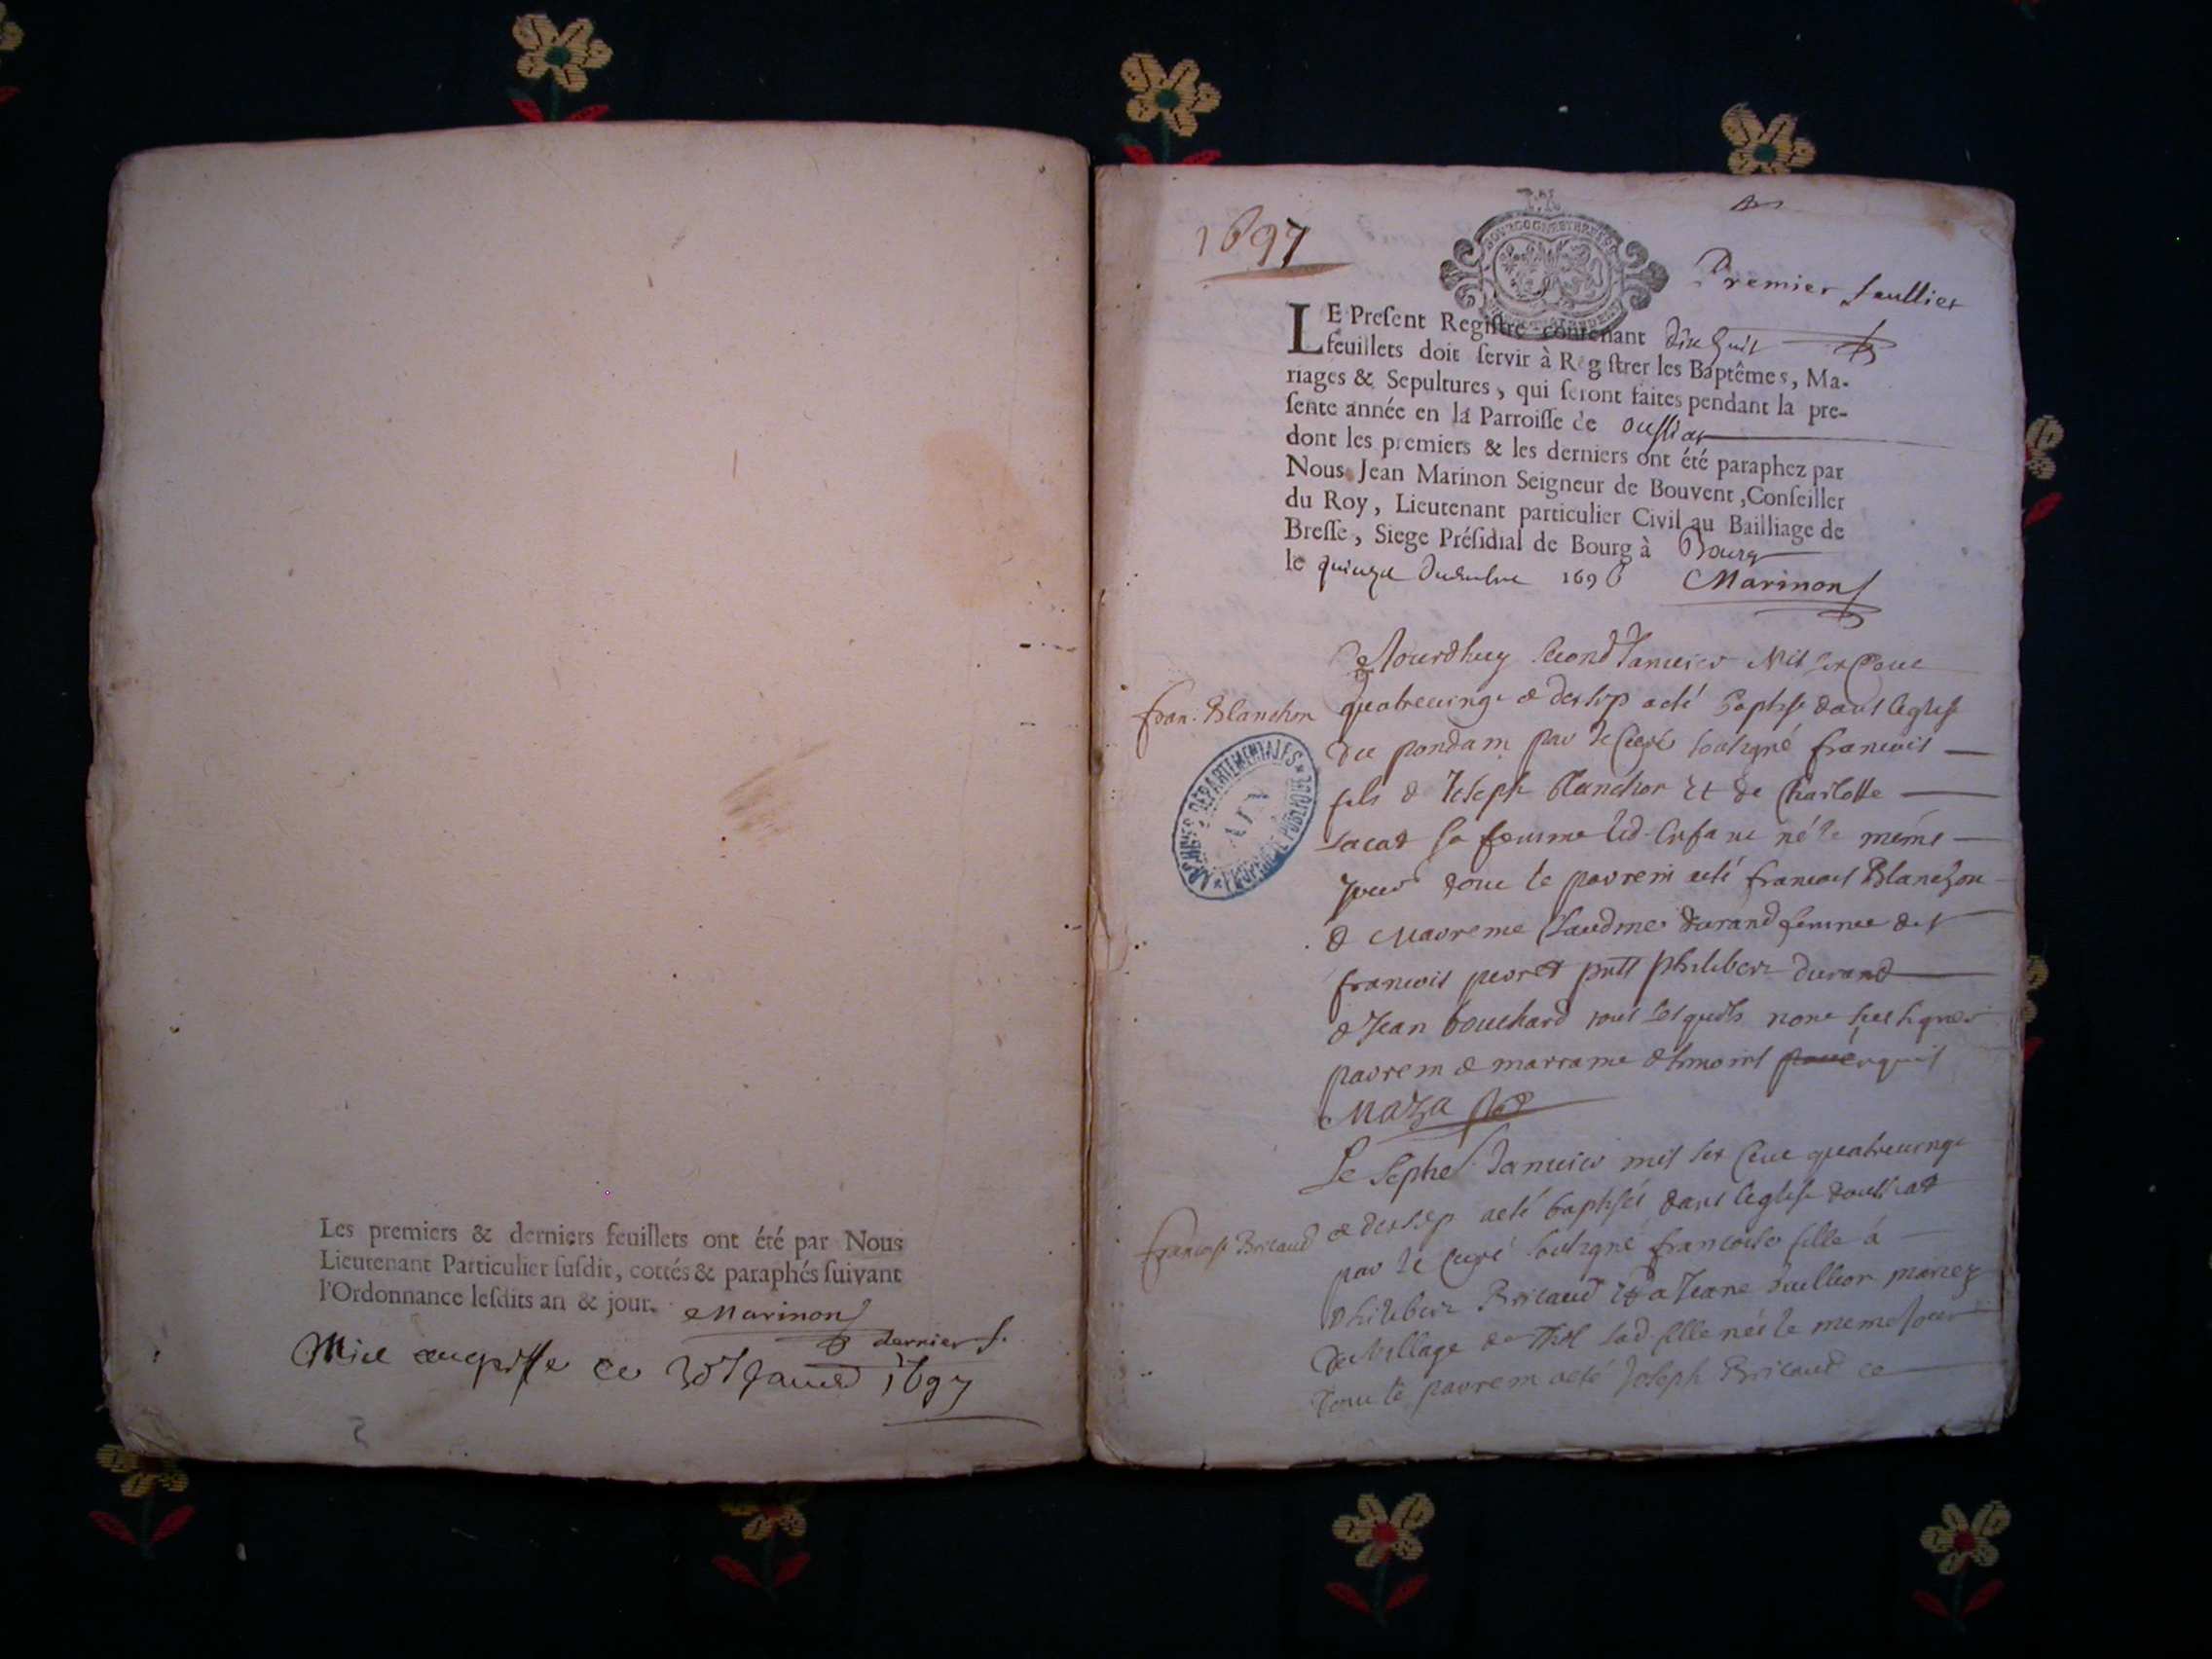 Les premiers & derniers feuillets ont été par Nous
Lieutenant Particulier ſuſdit, cottés & paraphés ſuivant
l'Ordonnance leſdits an & jour. Marinon
dernier f.
ce Janvier 1697
1697
Premier feullier
LE Preſent Regiſtre contenant dix huit
feuillets doit ſervir à Regiſtrer les Baptêmes, Ma-
riages & Sepultures, qui ſeront faites pendant la pre-
ſente année en la Parroiſſe de ouſſiat
dont les premiers & les derniers ont été paraphez par
Nous Jean Marinon Seigneur de Bouvent, Conſeiller
du Roy, Lieutenant particulier Civil au Bailliage de
Breſſe, Siege Préſidial de Bourg à Bourg
le quinze decembre 1696 Marinon
second Janvier Mil six Cent
fran. Blanchon
quatrevingt & dix sep a eté Baptise dans l'eglise
du pondain par le Curé soubsigné francois
fils de Joseph Blanchon et de Charlotte
sa femme led. Enfant né le même
Jour dont le parrein a eté francois Blanchon
& Marreine Claudine durand femme de
francois philibert durand
& Jean bouchard
parrein & marraine
ARCHIVES DEPARTEMENTALES
AIN
Maza
Le Janvier mil six Cent quatrevingt
francoise Bricaud
& dix sep a eté baptisée dans l'eglise d'oussiat
par le Curé soubsigné francoise fille à
philibert Bricaud et a Jeane mariez
du village de Thol lad. fille née le meme Jour
dont le parrein a eté Joseph Bricaud